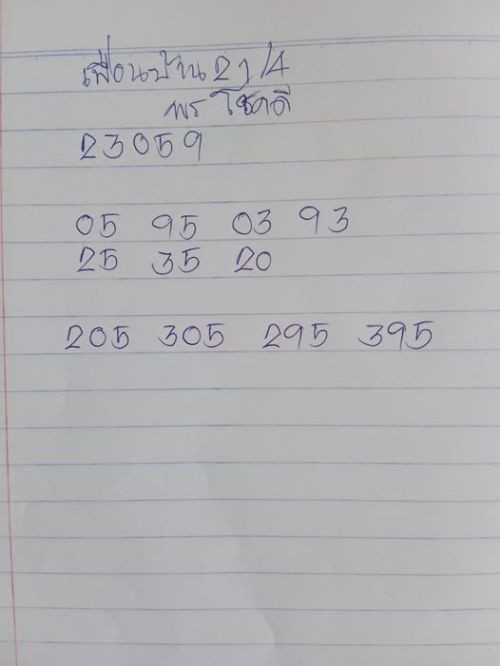 เพื่อนบ้าน 21/4
พร โชคดี
23059
05 95 03 93
25 35 20
205 305 295 395